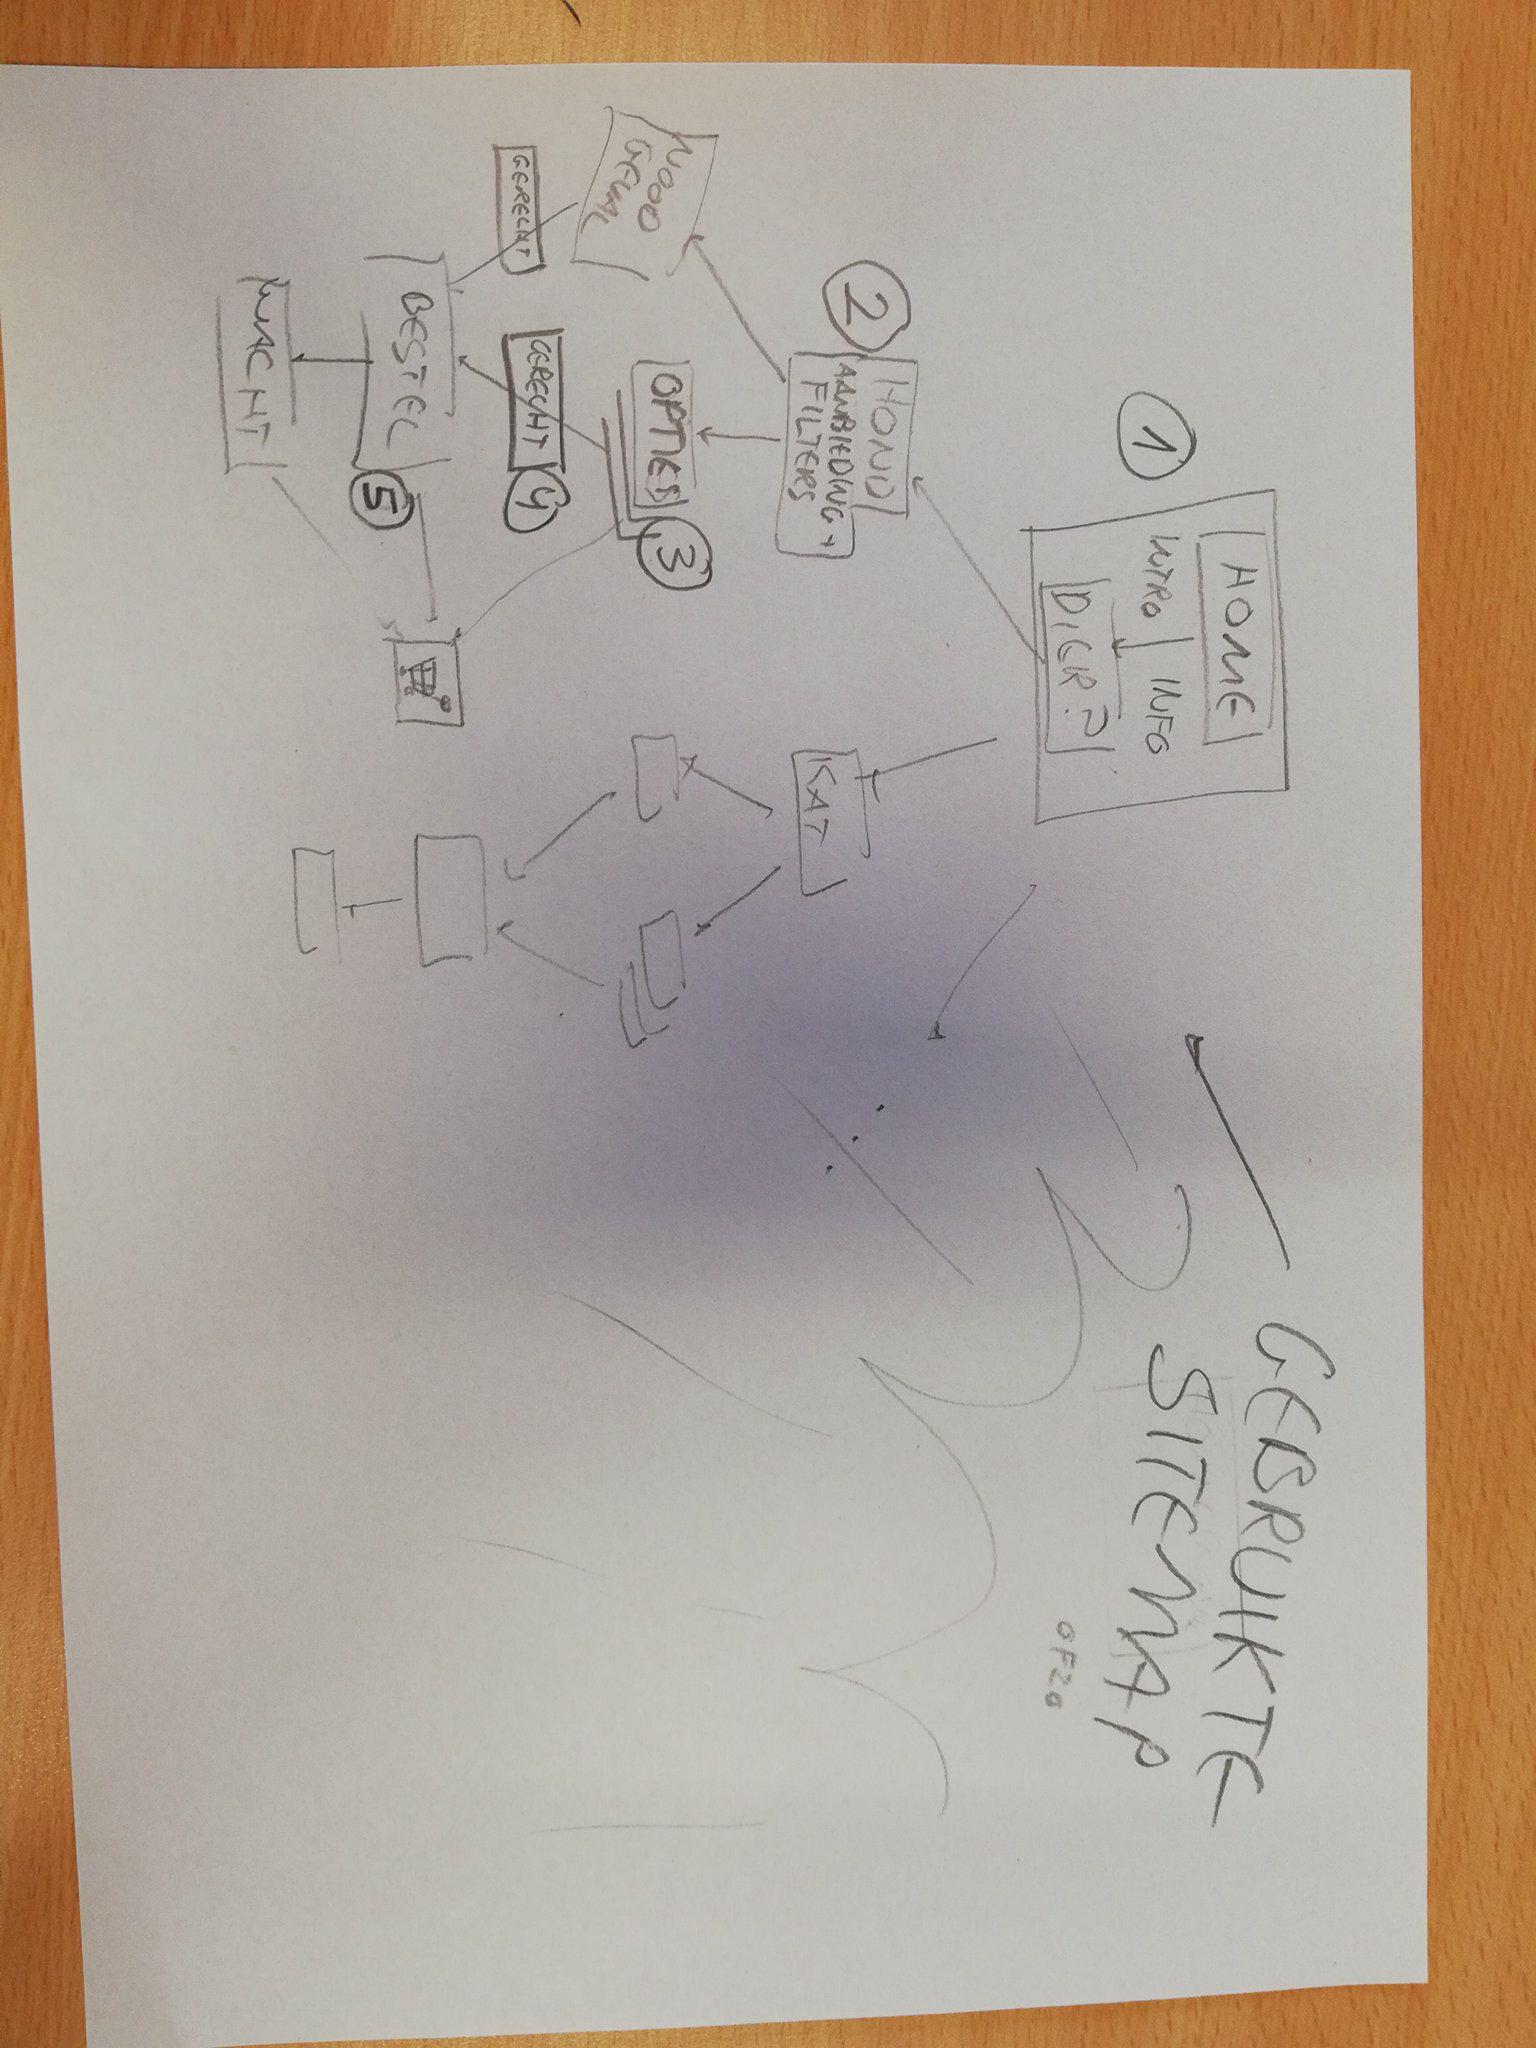 GEBRUIKTE
SITEMAP
OFZO
HOME
INTRO INFO
DIER?
1
2
HOND
AANBIEDING +
FILTERS
KAT
NOOD
GEVAL
OPTIES
3
GERECHT
GERECHT
4
BESTEL
5
WACHT